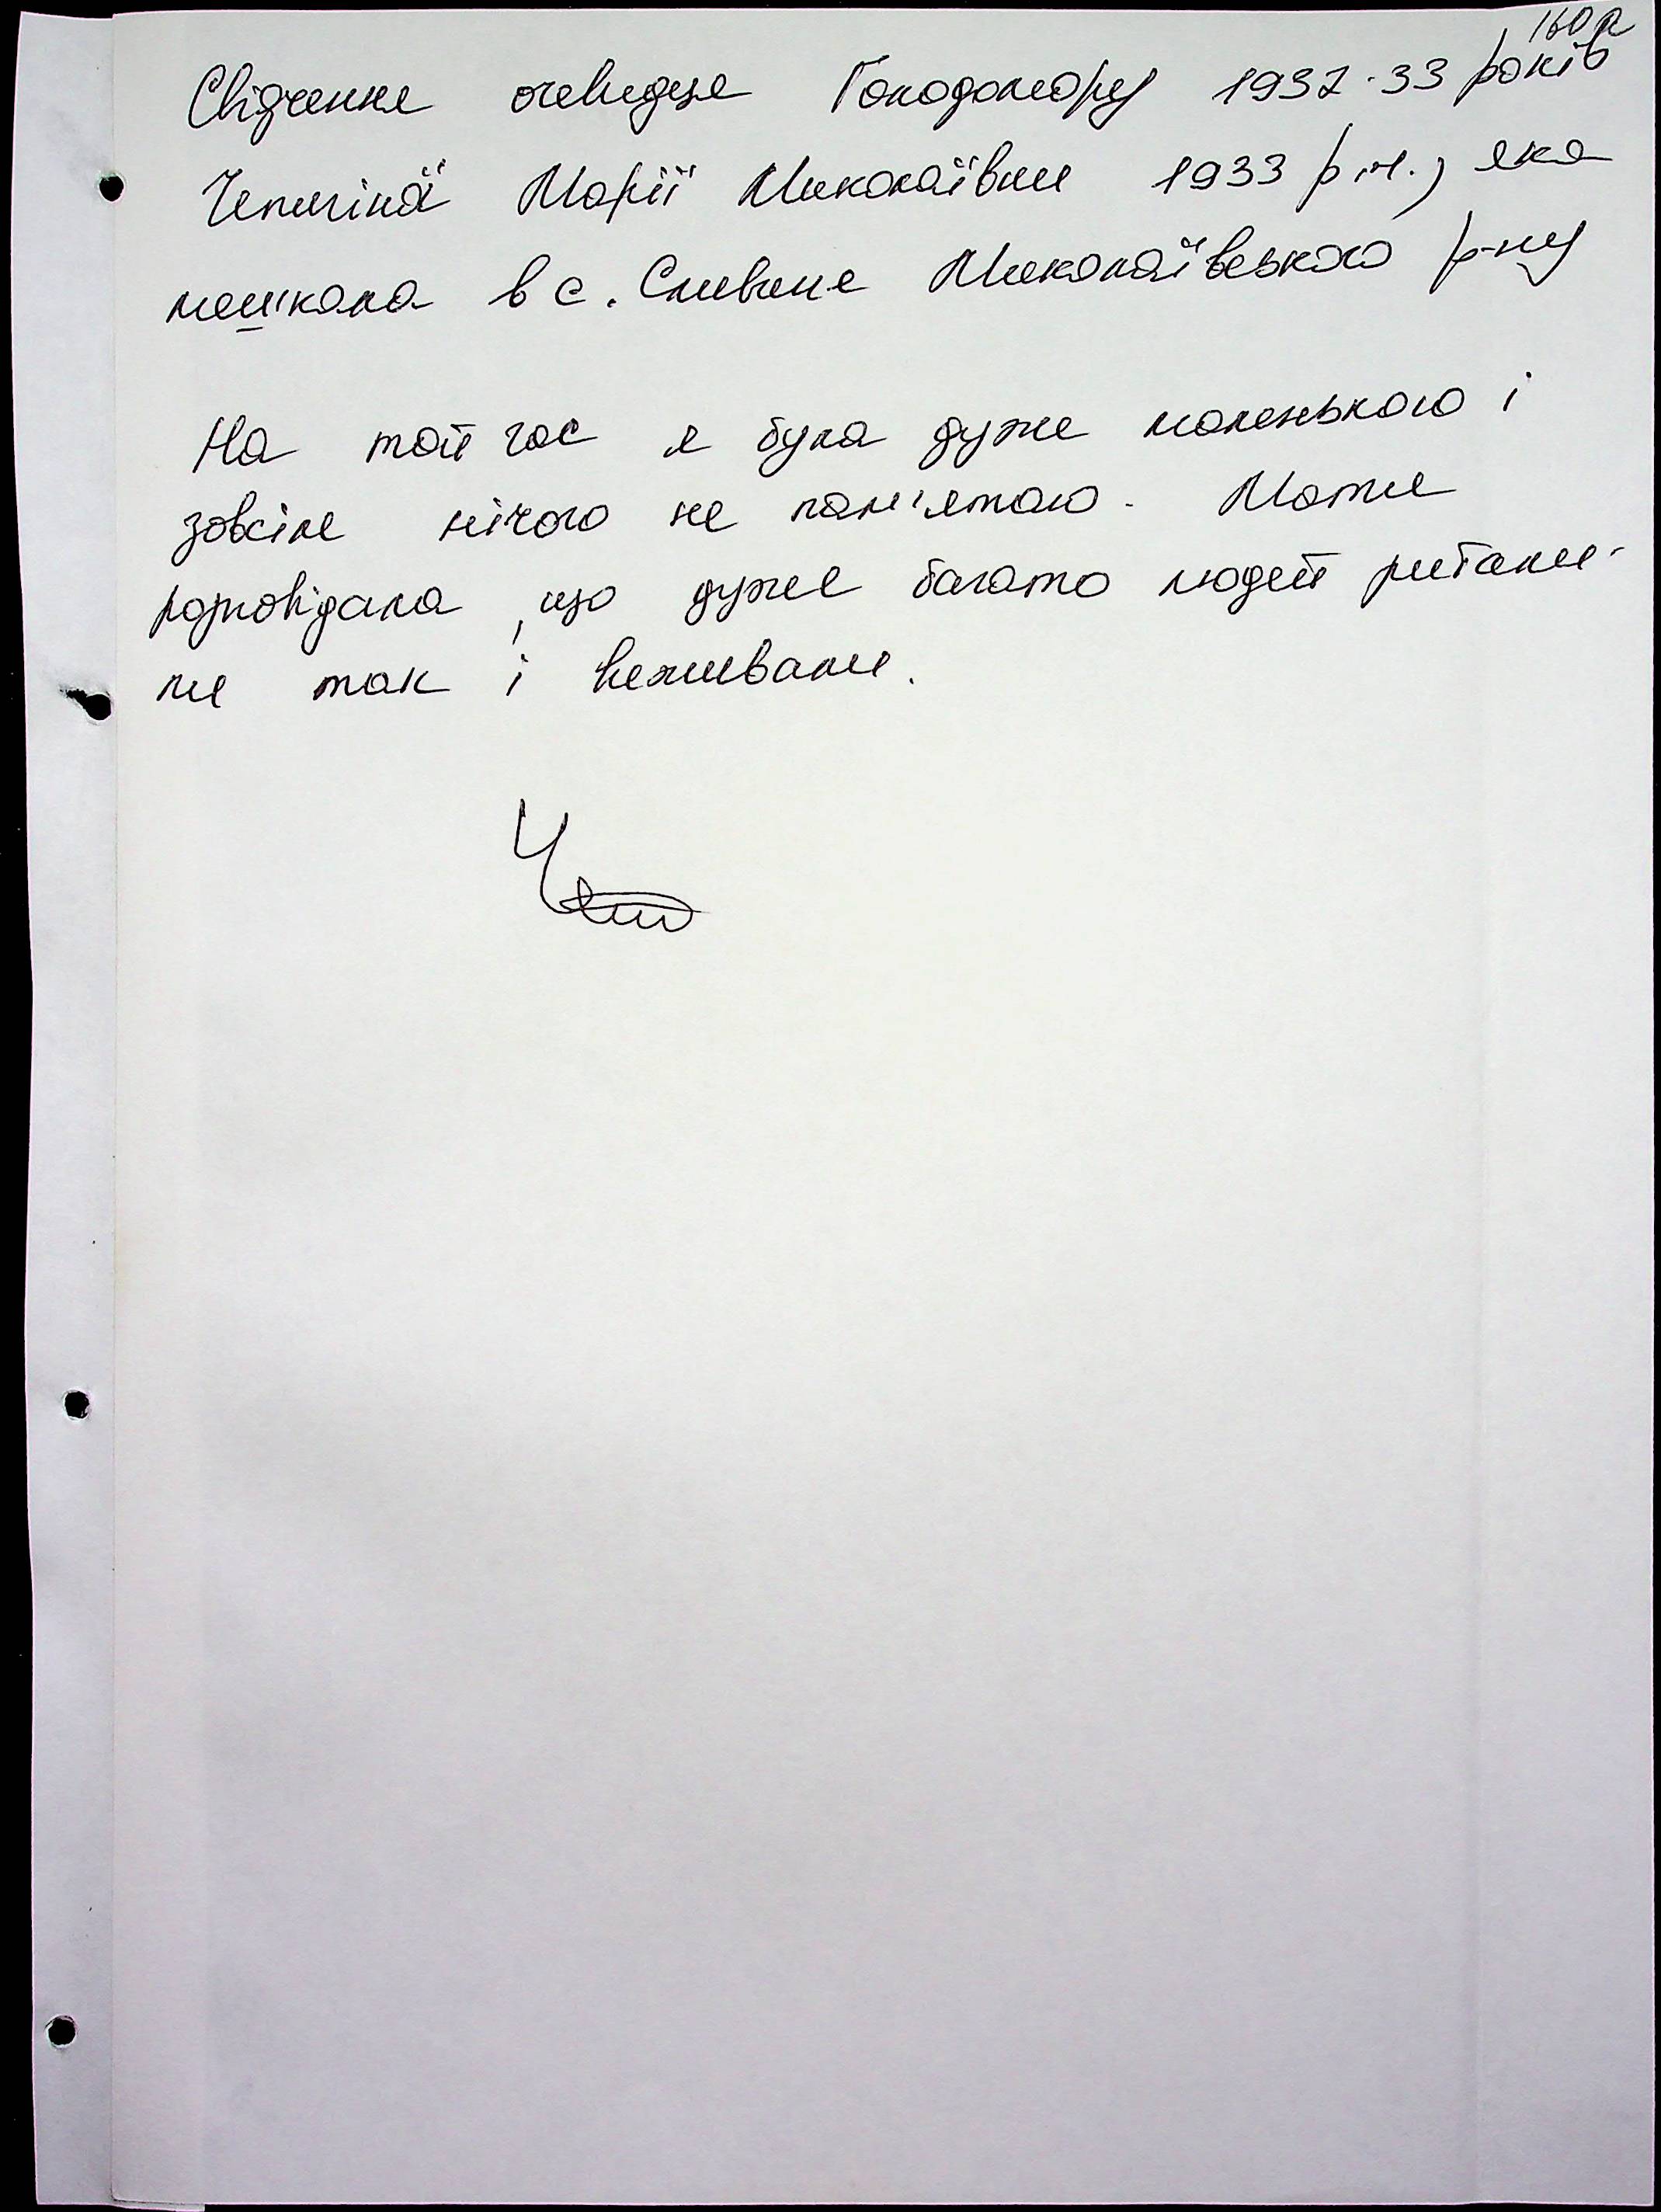 160а
Свідчення очевидця Голодомору 1932-33 років
Чепиріної Марії Миколаївни 1933 р.н., яка
мешкала в с. Сливине Миколаївського р-ну
На той час я була дуже маленькою і
зовсім нічого не пам'ятаю. Мати
розповідала, що дуже багато людей
ли так і виживали.